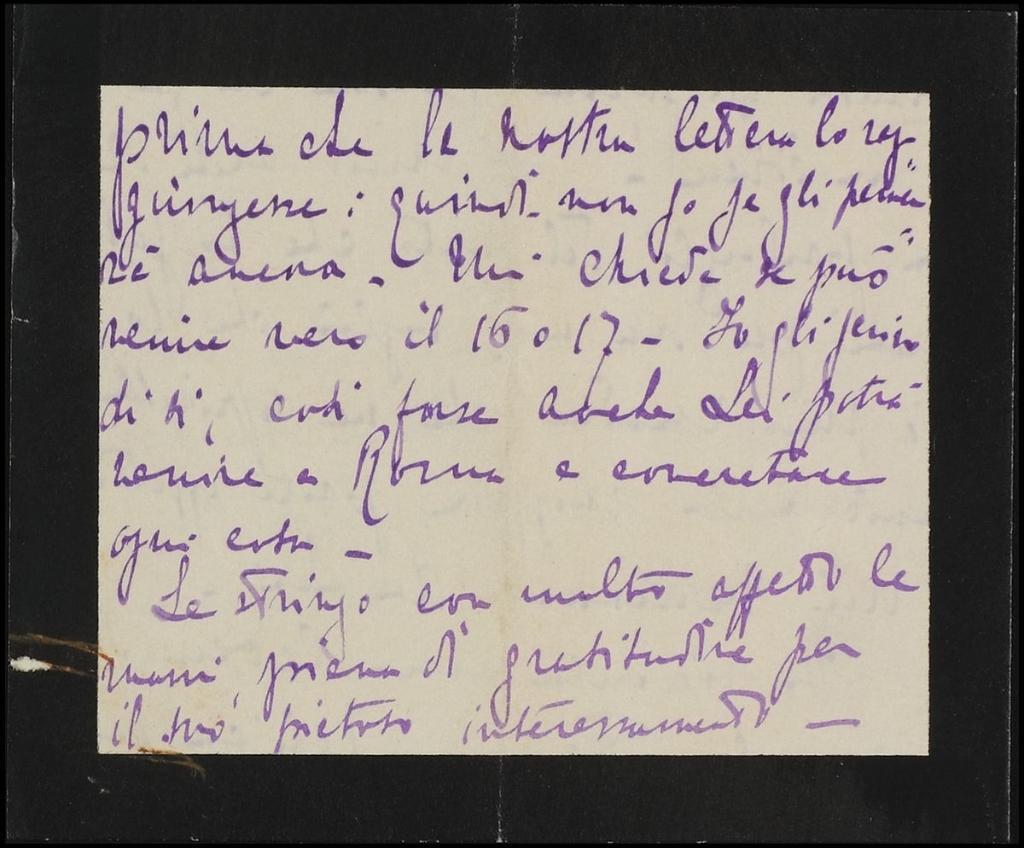 prima che la nostra lettera lo rag-
giungesse: quindi non so se gli perver
rà ancora - Mi chiede se può
venire verso il 16 o 17 - Io gli scrivo
di sì, così forse anche Lei potrà
venire a Roma e concretare
ogni cosa -
Le stringo con molto affetto le
mani, piena di gratitudine per
il suo pietoso interessamento -